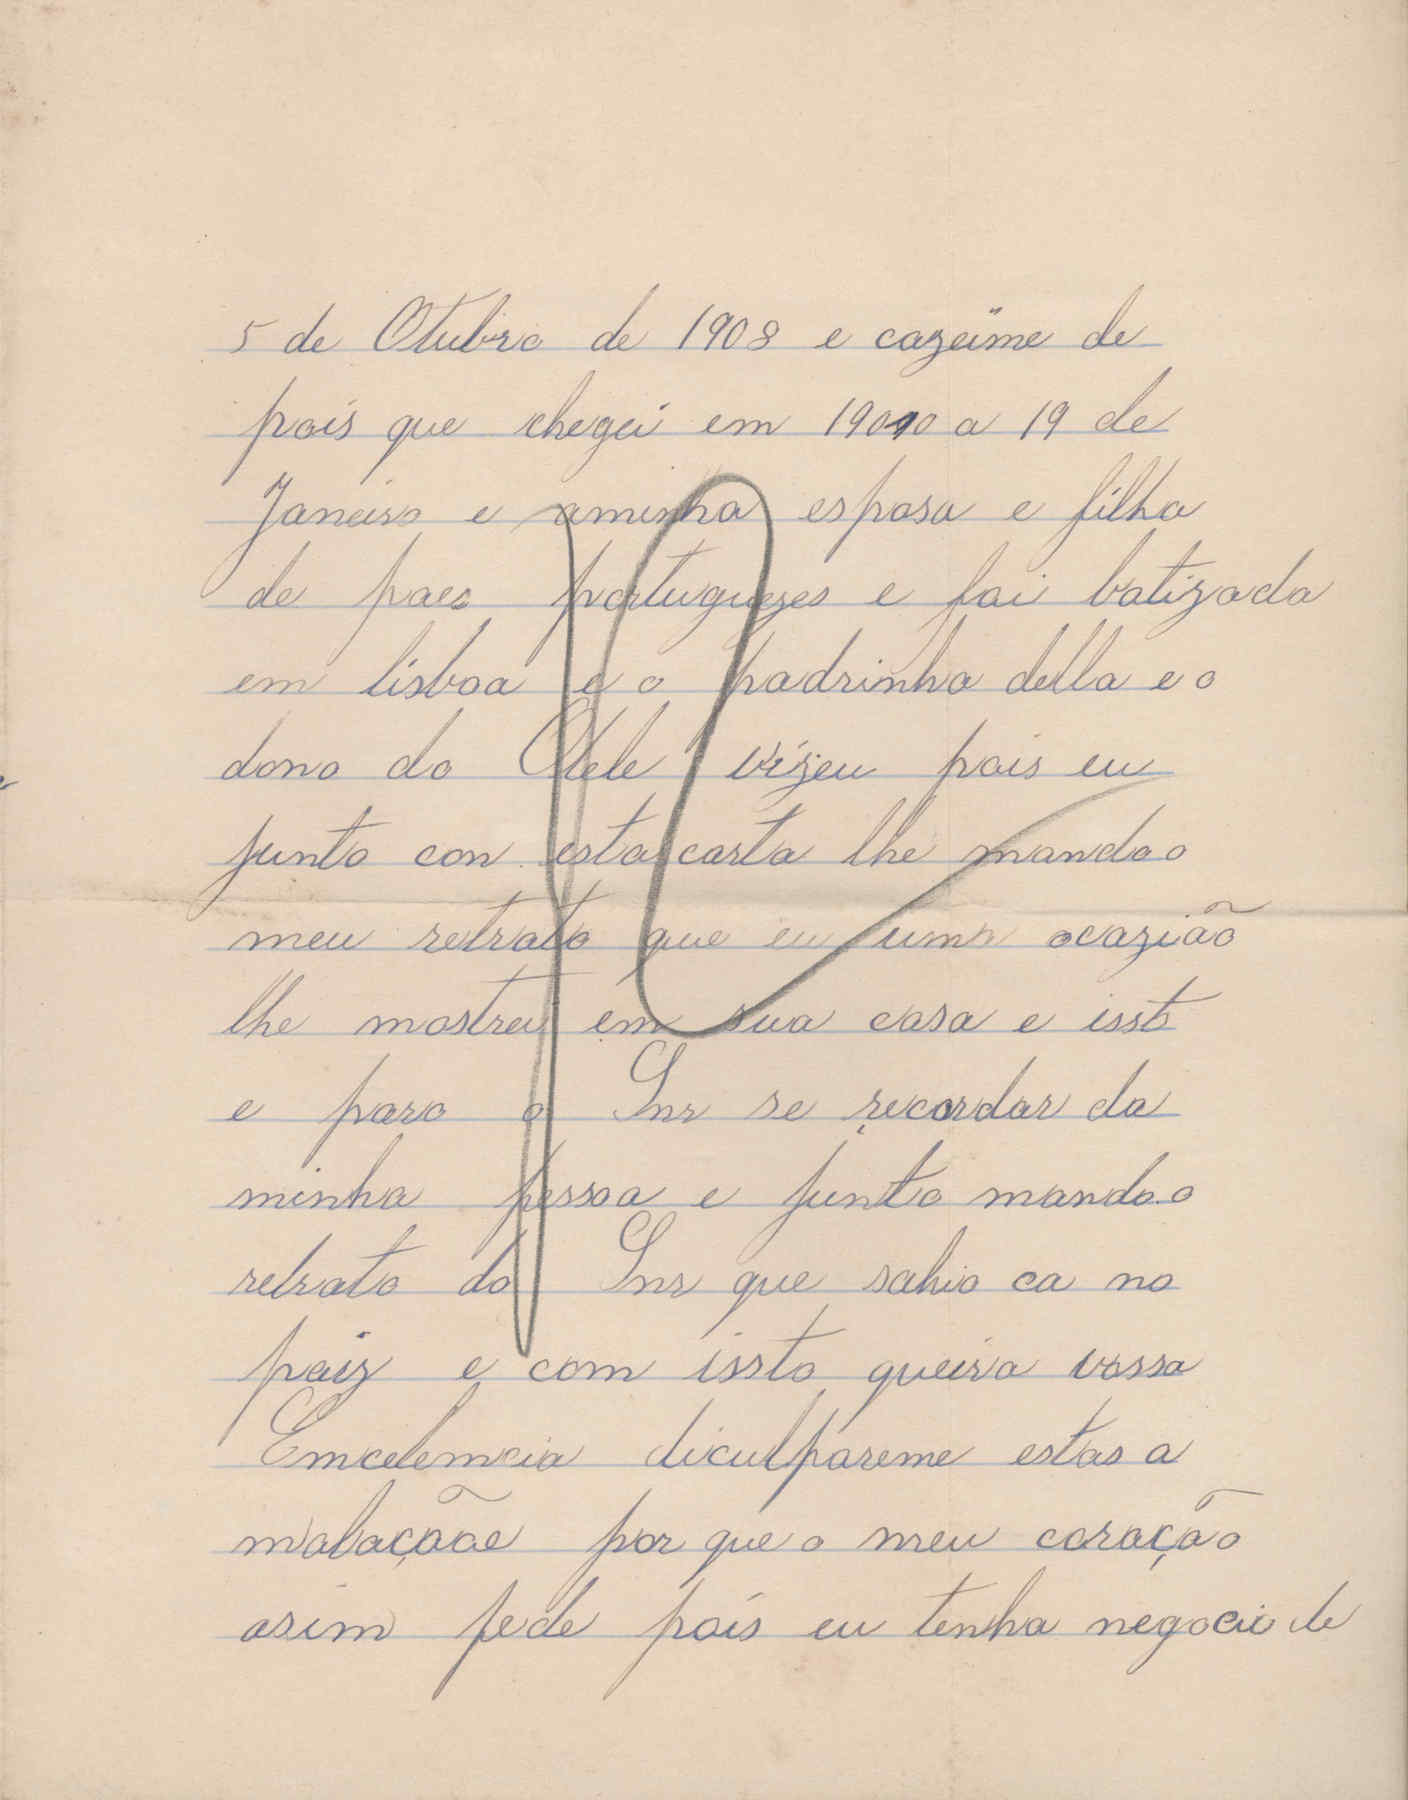 5 de Otubro de 1908 e cazeime de
pois que chegei em 19010 a 19 de
Janeiro e aminha esposa e filha
de paes portuguezes e foi batizada
em lisboa e o padrinho della e o
dono do Otele vizeu pois eu
junto con esta carta lhe mando o
meu retrato que eu uma ocazião
lhe mostrei em sua casa e issto
e para o Snr se recordar da
minha pessoa e junto mando o
retrato do Snr que sahio ca no
paiz e com issto queira vossa
Emcelemcia diculpareme estas a
malaçãoe por que o meu coração
asim pede pois eu tenho negocio de